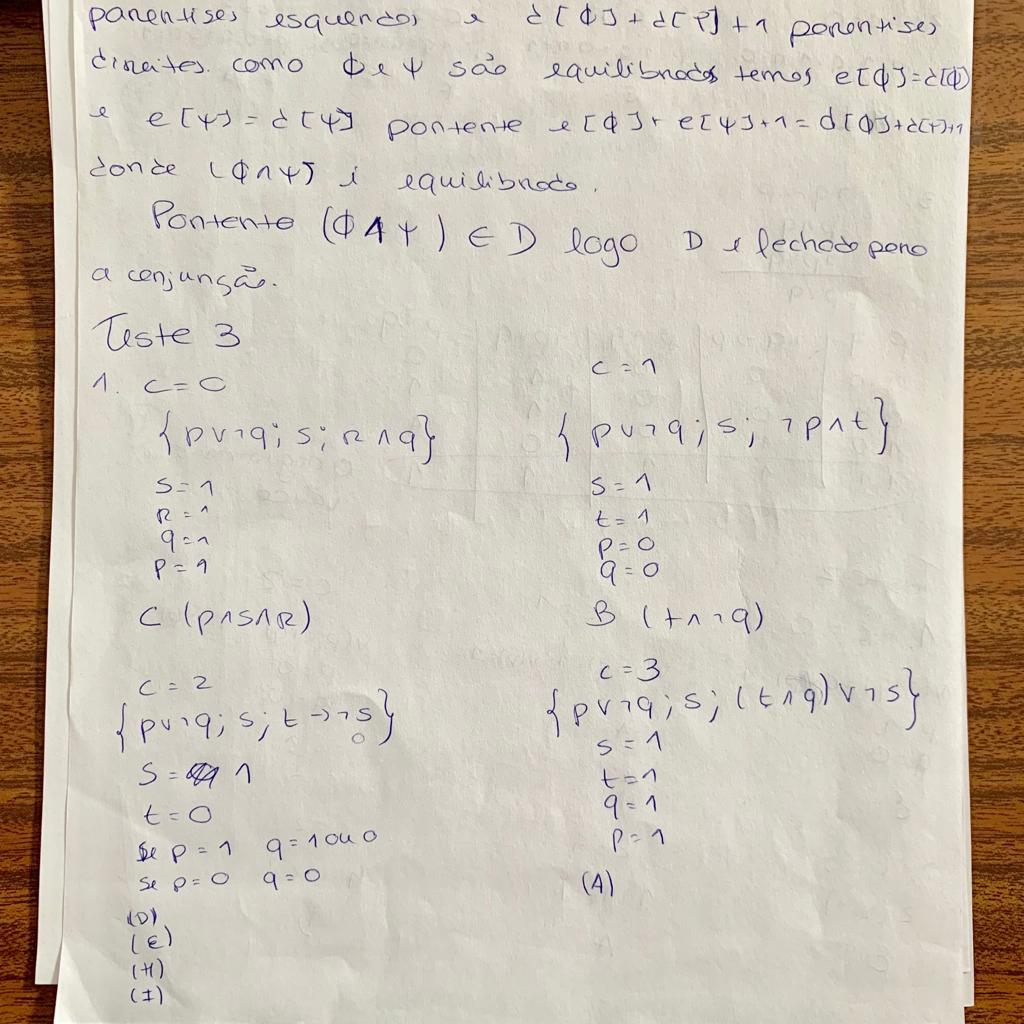 parentises esquerdos e d[ϕ]+d[Ψ]+1 parentises
direitos. como ϕ e ψ são equilibrados temos e[ϕ]=d[ϕ]
e e[ψ]=d[ψ] portento e[ϕ]+e[ψ]+1=d[ϕ]+d[ψ]+1
donde (ϕ∧ψ) é equilibrado.
Portento (ϕ∧ψ)∈D logo D é fechado para
a conjunção.
Teste 3
1. C=0
{p∨¬q; s; R∧q}
S=1
R=1
q=1
P=1
C (p∧s∧R)
C=1
{p∨¬q; s; ¬p∧t}
S=1
t=1
p=0
q=0
B (t∧¬q)
C=2
{p∨¬q; s; t→¬s}
0
S=1
t=0
se p=1 q=1 ou 0
se p=0 q=0
(D)
(E)
(H)
(I)
C=3
{p∨¬q; s; (t∧q)∨¬s}
S=1
t=1
q=1
p=1
(A)